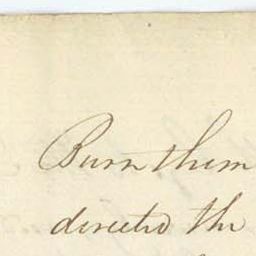 Burn them
directed the